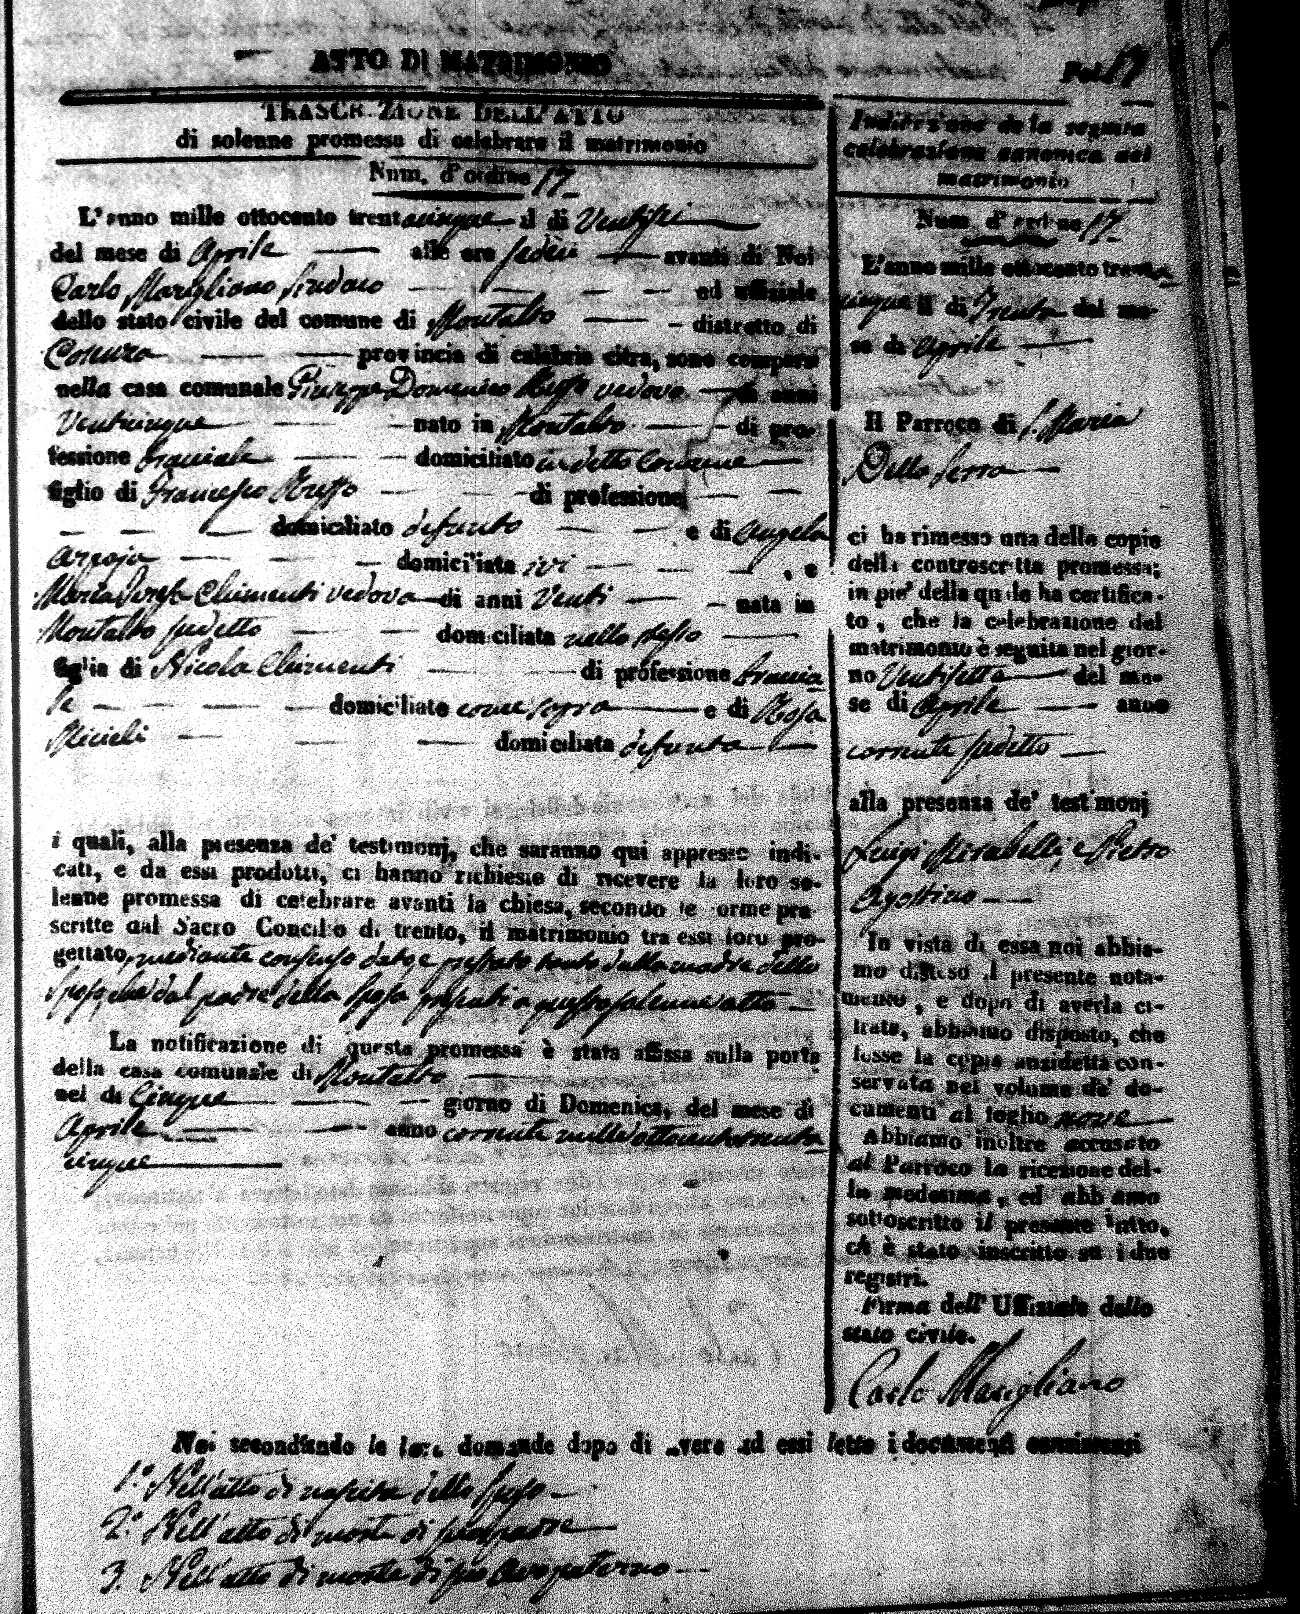 ATTO DI MATRIMONIO
Fol. 17
TRASCRIZIONE DELL'ATTO
di solenne promessa di celebrare il matrimonio
Num. d'ordine 17
L'anno mille ottocento trentacinque il di Ventisei
del mese di Aprile alle ore sedici avanti di Noi
Carlo Marigliano Sindaco ed uffiziale
dello stato civile del comune di Montalto distretto di
Cosenza provincia di calabria citra, sono comparsi
nella casa comunale Giuseppe Domenico Russo vedovo di anni
Venticinque nato in Montalto di pro-
fessione braciale domiciliato in detto Comune
figlio di Francesco Russo di professione
domiciliato defunto e di Angela
domiciliata ivi , e
Maria Teresa Chimenti vedova di anni Venti nata in
Montalto sudetto domiciliata nello stesso
figlia di Nicola Chimenti di professione bracia
le domiciliato come sopra e di Rosa
Micieli domiciliata defunta
i quali, alla presenza de' testimonj, che saranno qui appresso indi-
cati, e da essi prodotti, ci hanno richiesto di ricevere la loro so-
lenne promessa di celebrare avanti la chiesa, secondo le forme pre-
scritte dal Sacro Concilio di trento, il matrimonio tra essi loro pro-
gettato, mediante consenso dato e prestato tanto dalla madre dello
Sposo, che dal padre della Sposa presenti a questo solenne atto
La notificazione di questa promessa è stata affissa sulla porta
della casa comunale di Montalto
nel di Cinque giorno di Domenica, del mese di
Aprile anno corrente mille ottocento trenta
cinque
Indicazione della seguita
celebrazione canonica del
matrimonio
Num. d'ordine 17
L'anno mille ottocento trenta
cinque il di Trenta del me-
se di Aprile
Il Parroco di S. Maria
Della Serra
ci ha rimesso una delle copie
della controscritta promessa;
in pie' della quale ha certifica-
to, che la celebrazione del
matrimonio è seguita nel gior-
no Ventisette del me-
se di Aprile anno
corrente sudetto
alla presenza de' testimonj
Luigi Mirabelli, e Pietro
Agostino
In vista di essa noi abbia-
mo disteso il presente nota-
mento, e dopo di averla ci-
frata, abbiamo disposto, che
fosse la copia anzidetta con-
servata nel volume de' do-
cumenti al foglio nove
Abbiamo inoltre accusato
al Parroco la ricezione del-
la medesima, ed abbiamo
sottoscritto il presente atto,
ch'è stato inscritto su i due
registri.
Firma dell'Uffiziale dello
stato civile.
Carlo Marigliano
Noi secondando la loro domanda dopo di avere ad essi letto i documenti consistenti
1.° Nell'atto di nascita dello Sposo
2.° Nell'atto di morte di suo padre
3. Nell'atto di morte di suo avo paterno